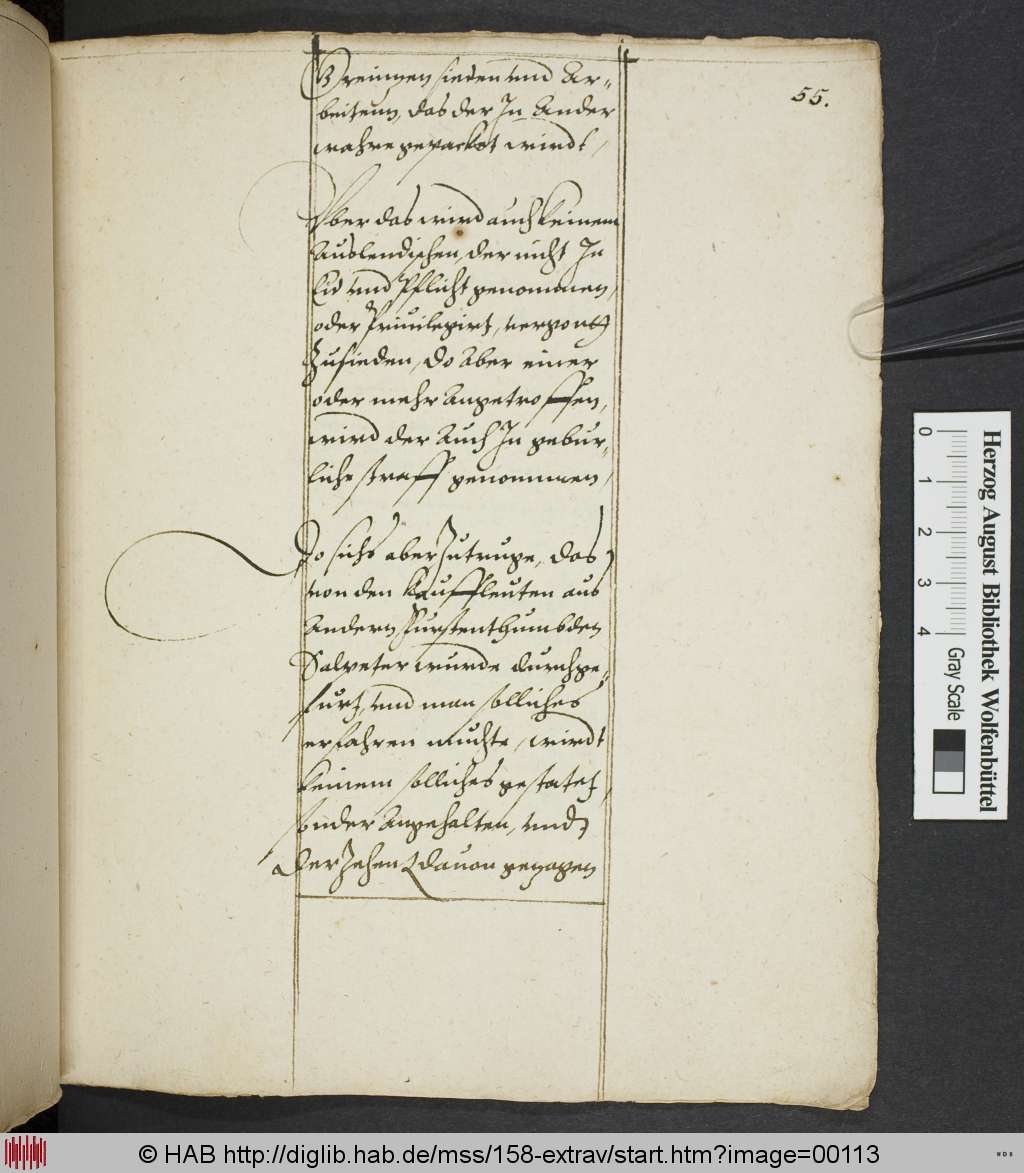 55.
Breingen sieden vnd Ar-
beiten, das der In Ander
wahre gepackt wirdt,
Vber das wird auch keinem
Auslendischen, der nicht In
Eid vnd Pflicht genommen,
oder Priuilegirt,
Zusieden, Do Aber einer
oder mehr Angetroffen,
wird der Auch In gebur-
liche straff genommen,
So sichs aber Zutruge, das
von den Kauffleuten aus
Andern Furstenthumbden
Salpeter wurde durchge-
furt, vnd man solliches
erfahren muchte, wirdt
keinem solliches gestatet,
sonder Angehalten, vnd
der Zehent dauon gezogen
0 1 2 3 4
Herzog August Bibliothek Wolfenbüttel
Gray Scale
© HAB http://diglib.hab.de/mss/158-extrav/start.htm?image=00113